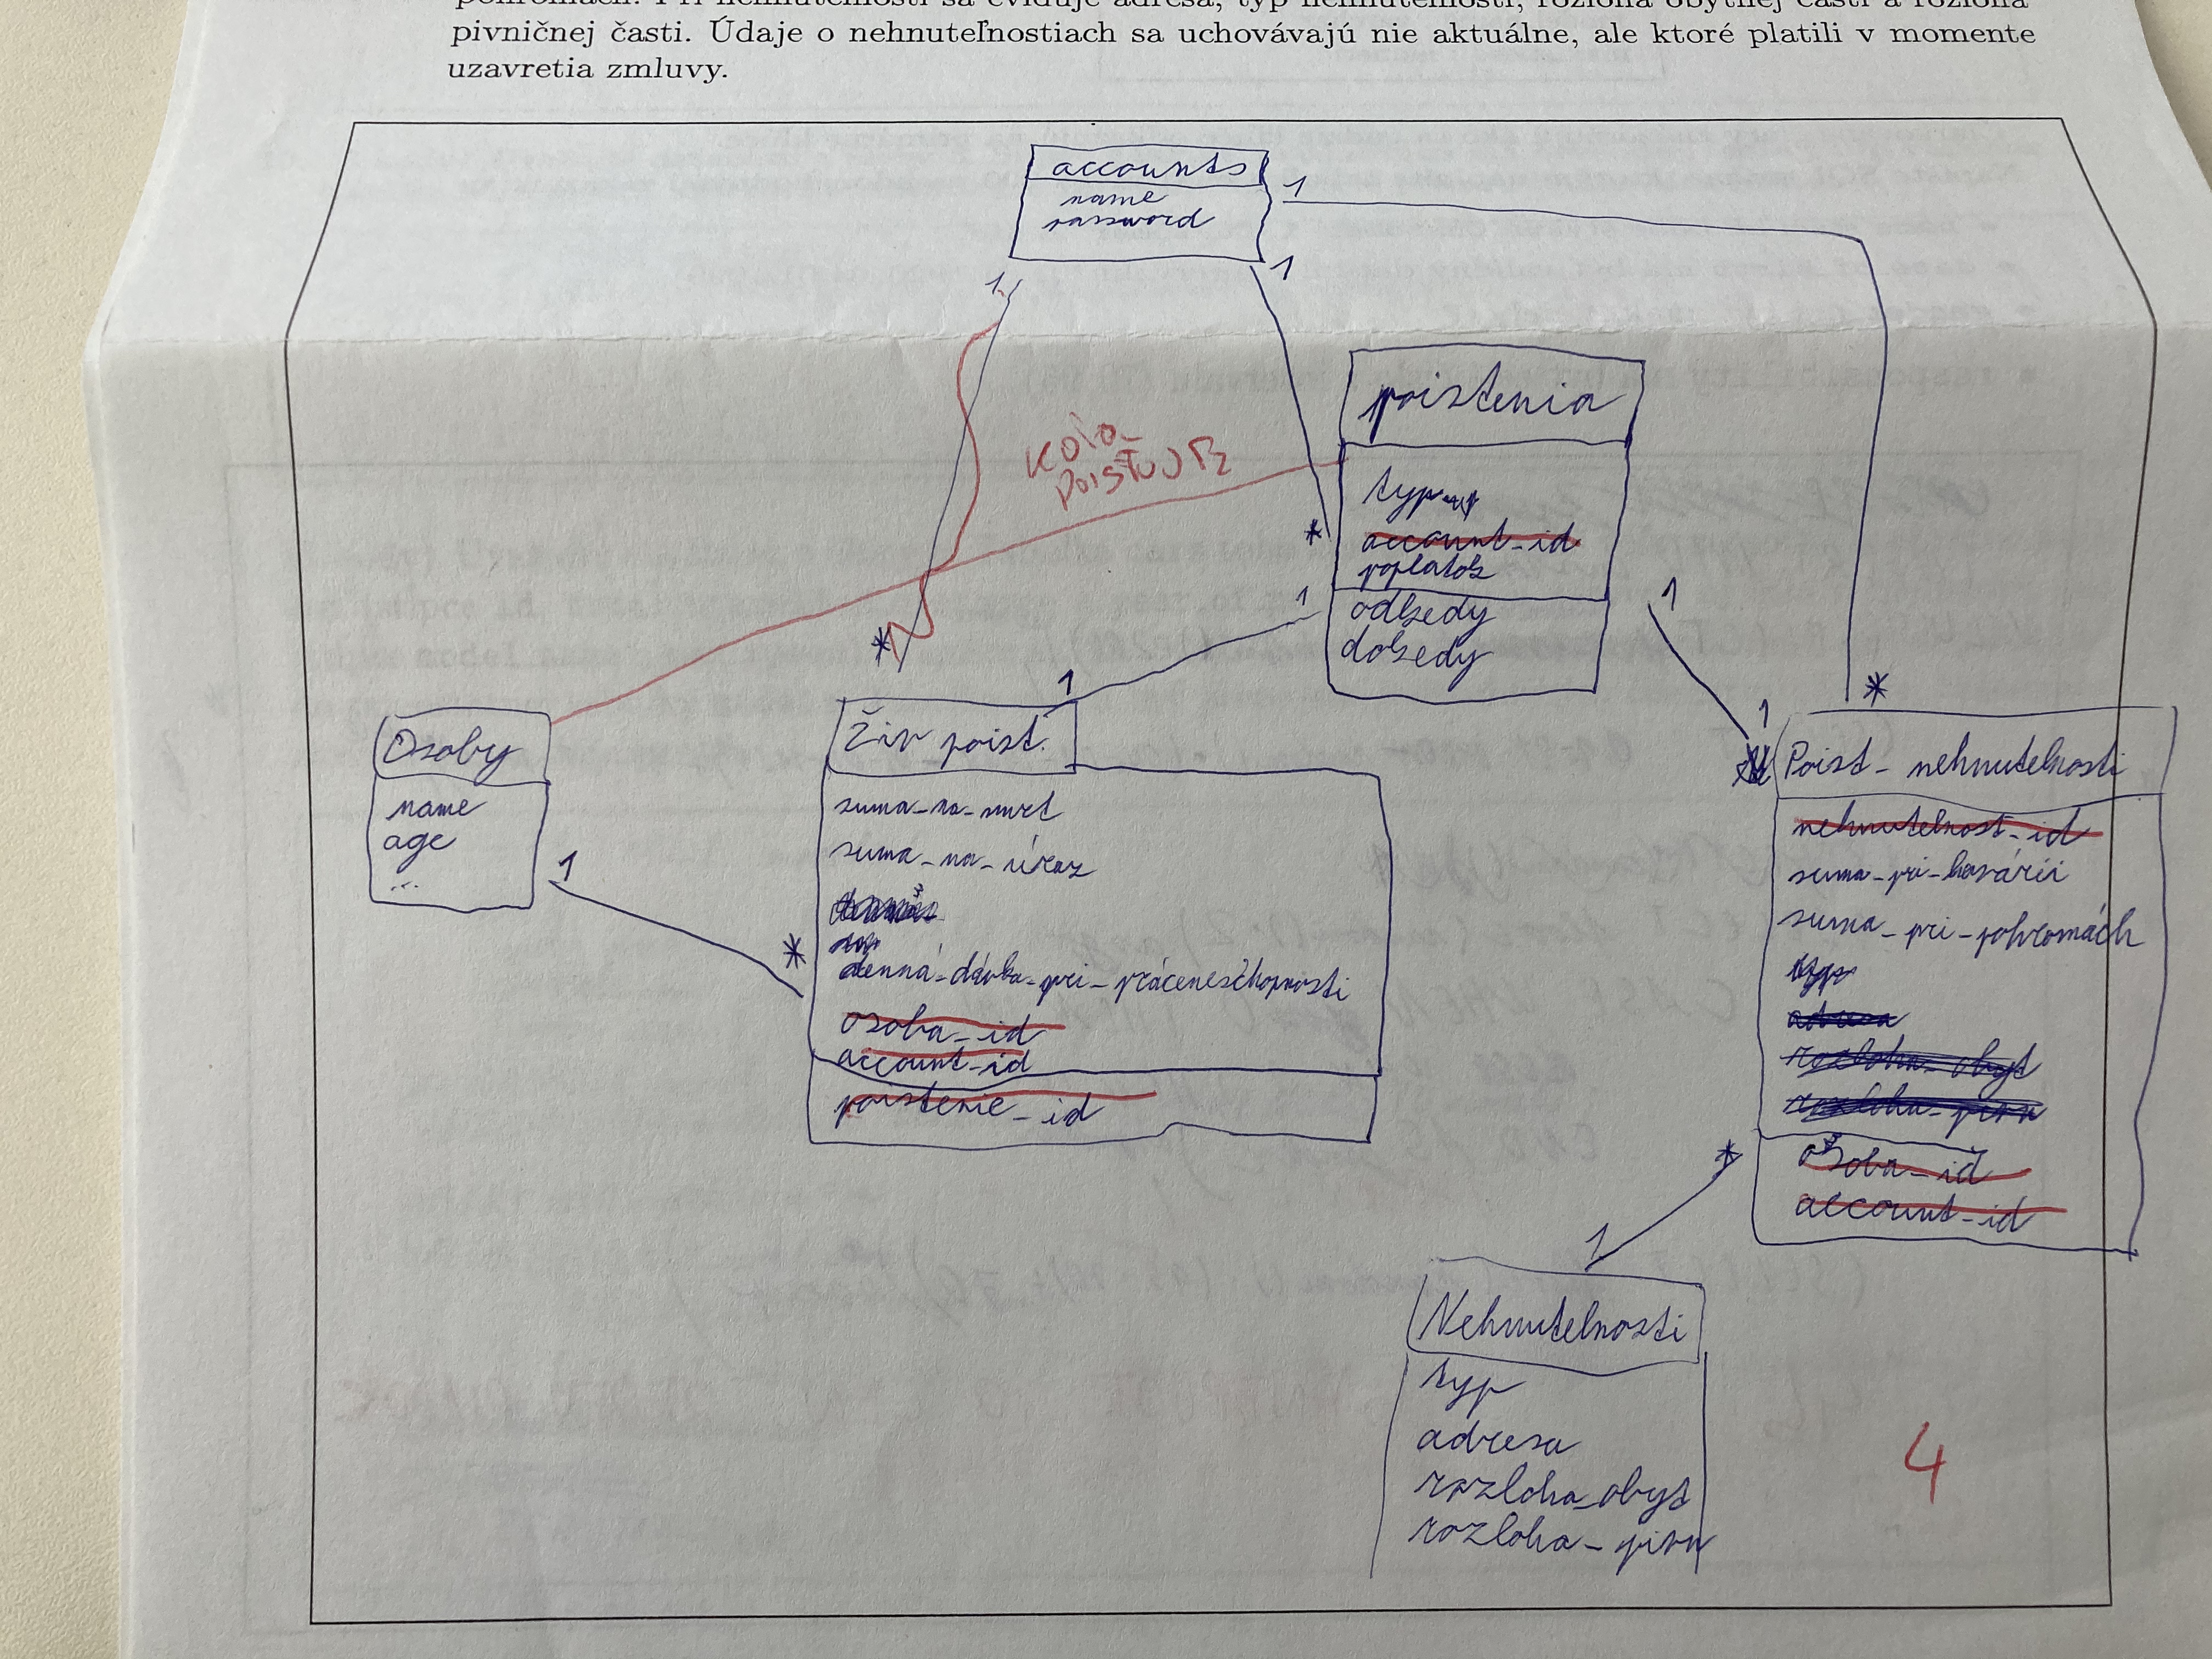 pivničnej časti. Údaje o nehnuteľnostiach sa uchovávajú nie aktuálne, ale ktoré platili v momente
uzavretia zmluvy.
accounts
name
password
1
1
1
*
*
*
poistenia
typ
account_id
poplatok
odkedy
dokedy
KOHO
POISŤUJE
1
1
1
1
Osoby
name
age
...
1
*
Živ poist.
suma_na_smrť
suma_na_úraz
denná_dávka_pri_práceneschopnosti
osoba_id
account_id
poistenie_id
Poist_nehnutelnosti
nehnutelnost_id
suma_pri_havárii
suma_pri_pohromách
typ
adresa
rozloha_obyt
rozloha_pivn
osoba_id
account_id
*
1
Nehnutelnosti
typ
adresa
rozloha_obyt
rozloha_pivn
4